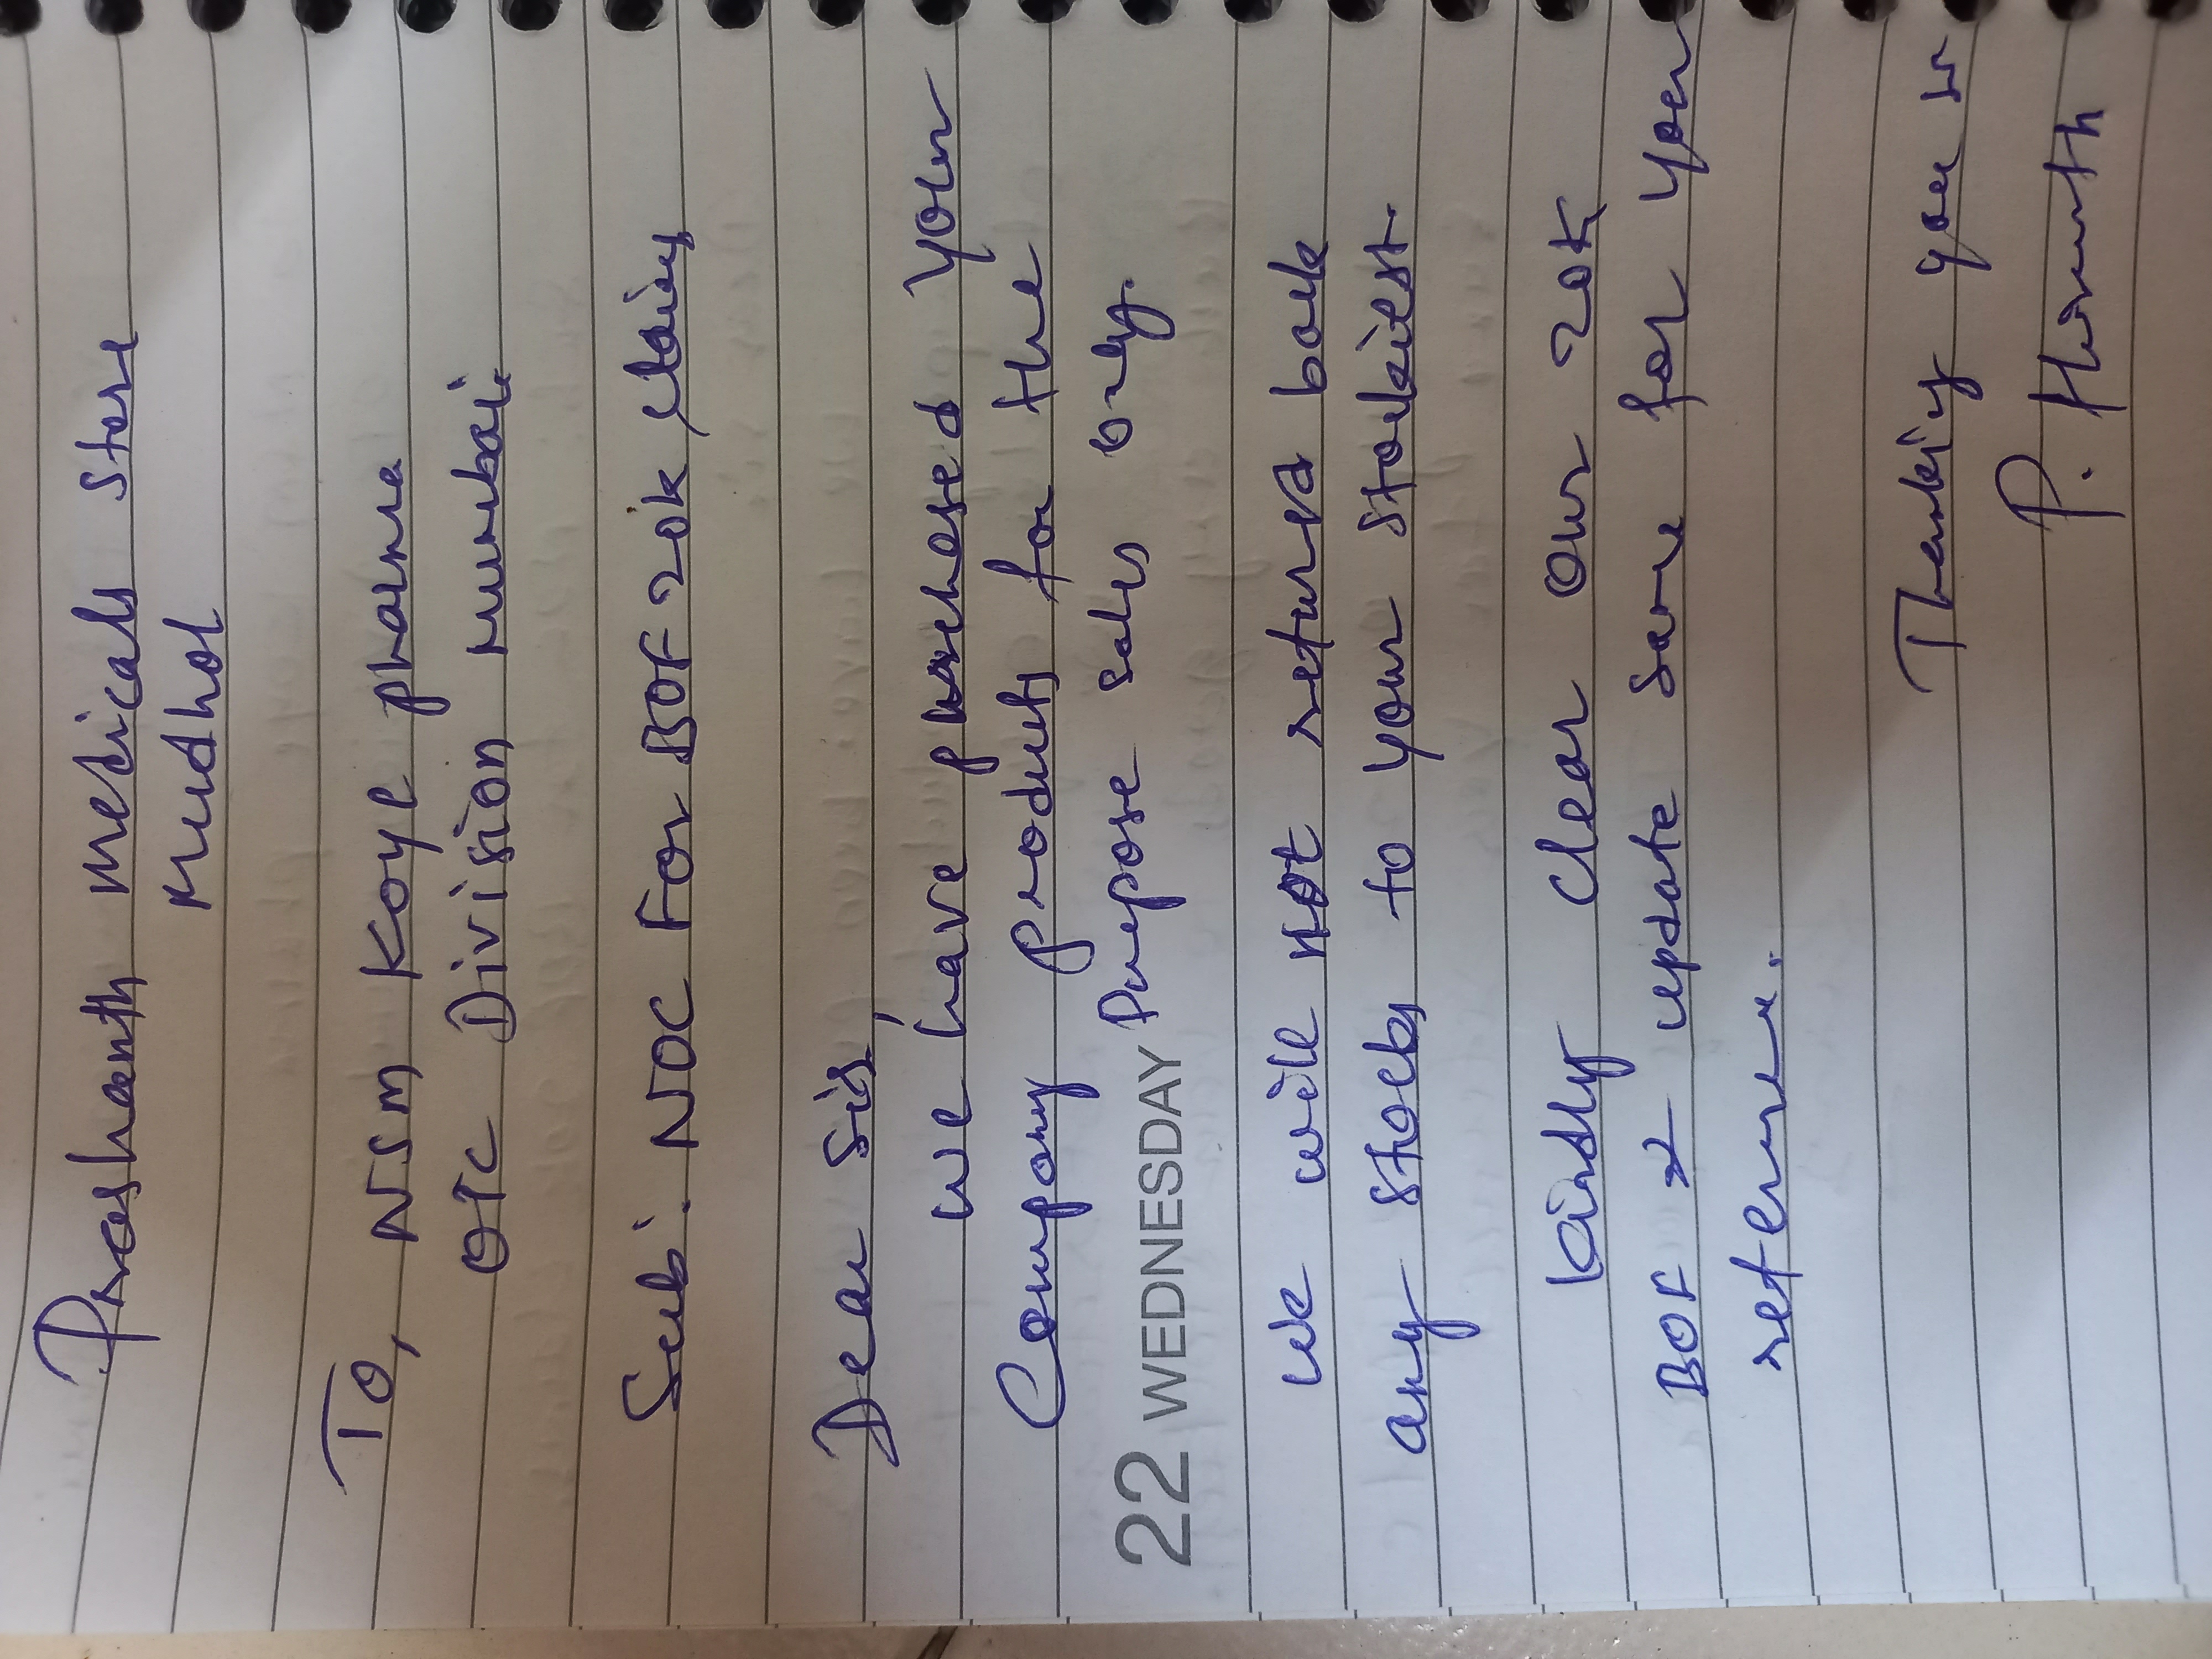 Prashanth medicals store
Mudhol
To,
NSM Koye pharma
OTC Division Mumbai
Sub: NOC For BOF 20k claim
Dear Sir,
we have purchased your
Company products for the
Purpose sales only.
22 WEDNESDAY
we will not returned back
any stocks to your stockiest.
kindly clear our 20k
BOF & update same for your
reference.
Thanking you sir
P.